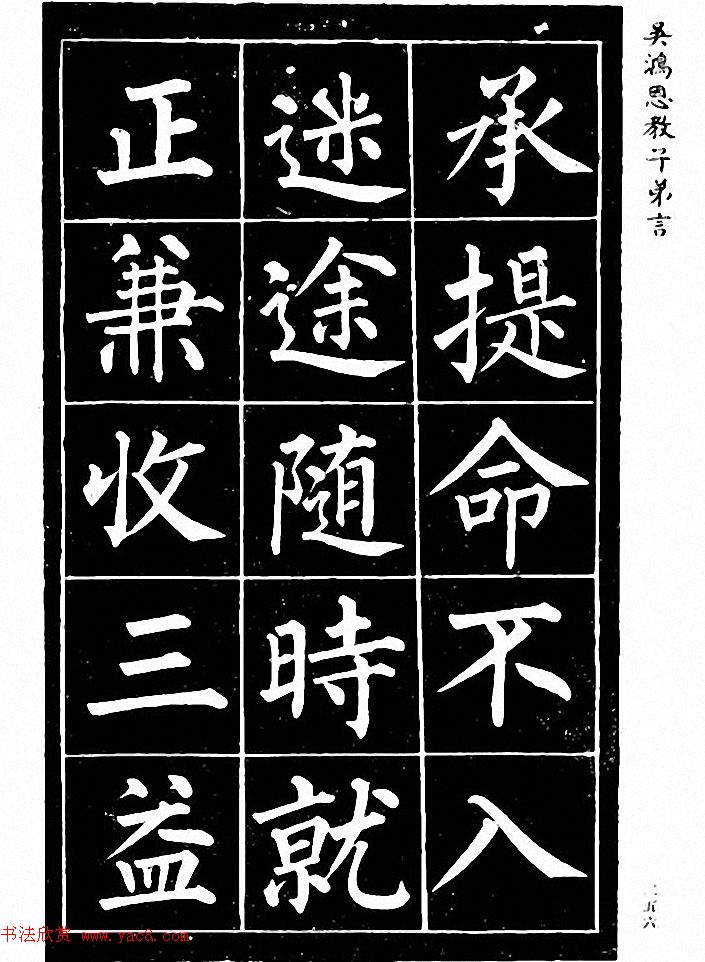 吴鴻恩教子弟言
承提命不入
迷途随時就
正兼收三益
五六
书法欣赏 www.yacd.com